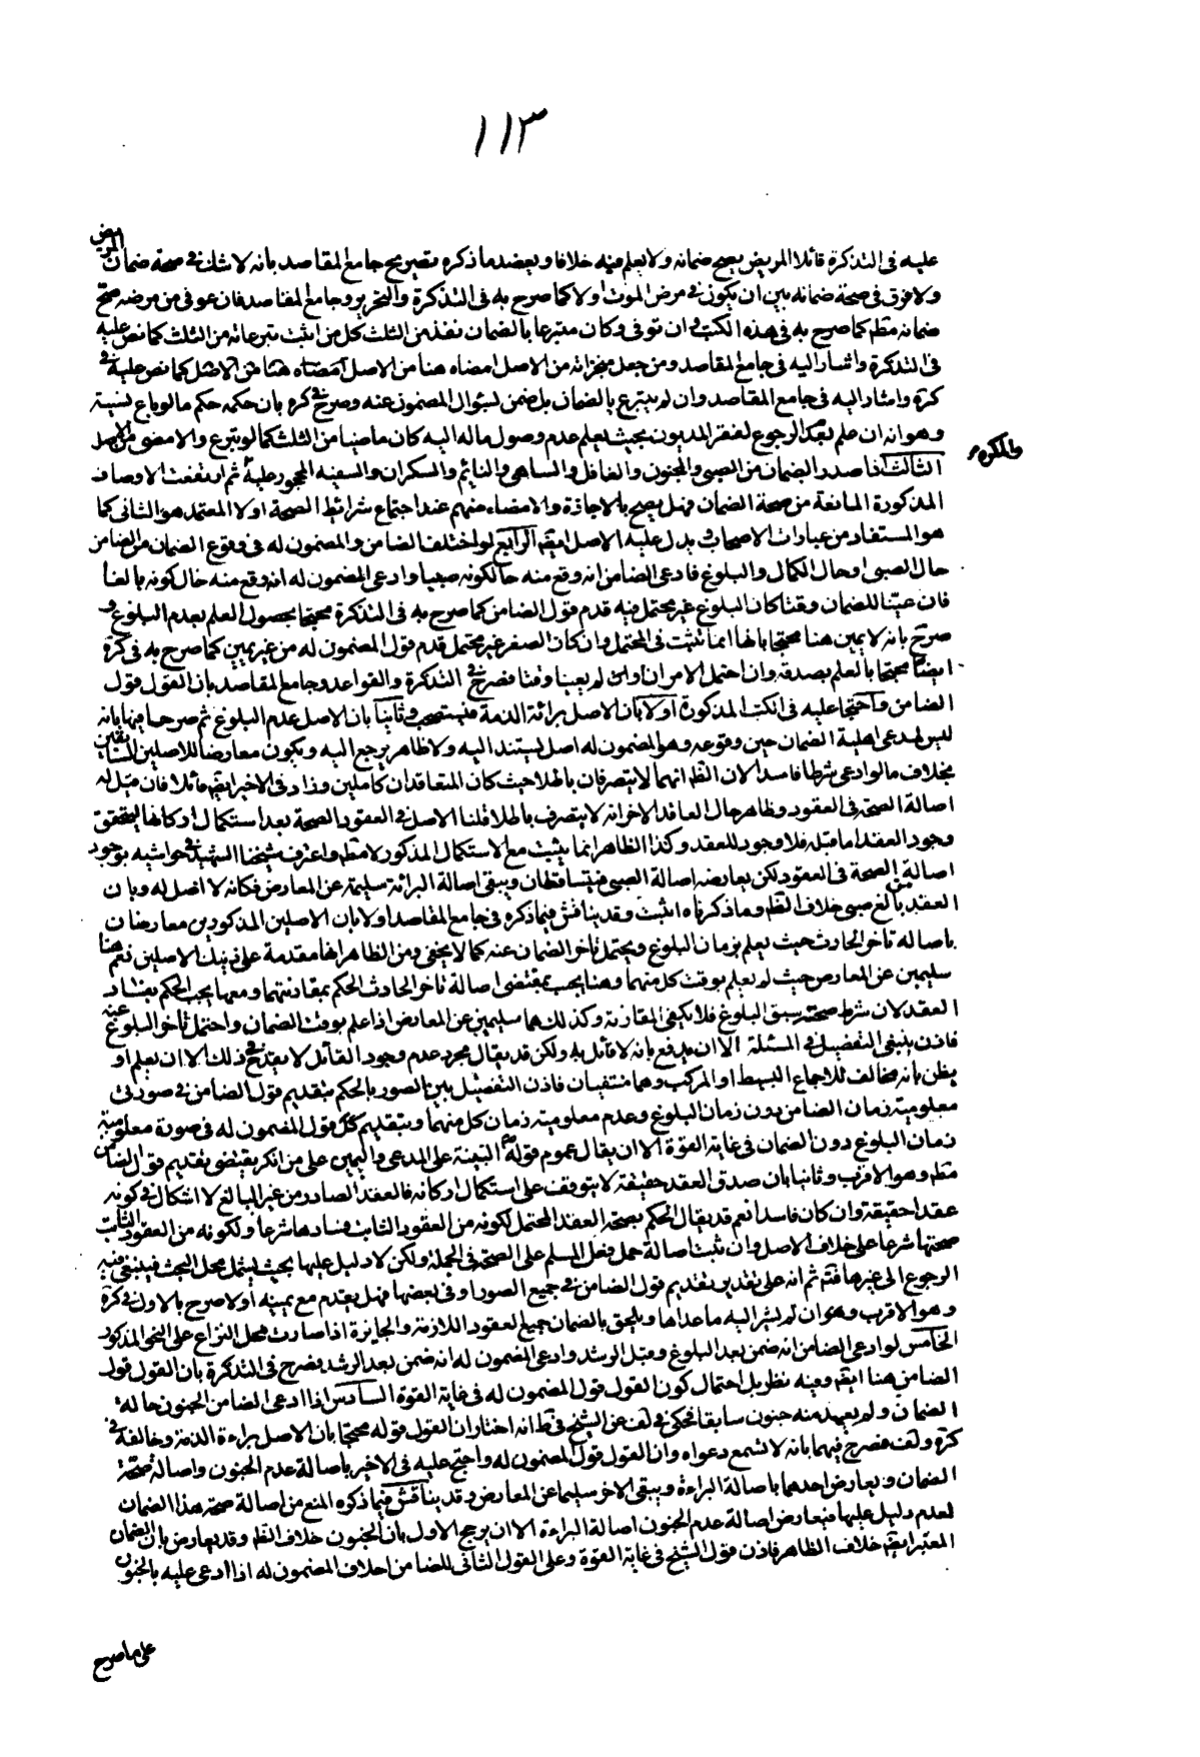 ١١٣
عليه فى التذكرة قائلا المريض يصح ضمانه ولا يعلم فيه خلافا ويعضد ما ذكره تصريح جامع المقاصد بانه لا شك فى صحة ضمان المريض
ولا فرق فى صحة ضمانه بين ان يكون فى مرض الموت اولا كما صرح به فى التذكرة والتحرير وجامع المقاصد فان عوفى من مرضه صح
ضمانه مطلقا كما صرح به فى هذه الكتب وان توفى وكان متبرعا بالضمان نفذ من الثلث كل من اثبت تبرعاته من الثلث كما نص عليه
فى التذكرة واشار اليه فى جامع المقاصد ومن جعل منجزاته من الاصل امضاه هنا من الاصل امضاه هنا من الاصل كما نص عليه فى
كرة واشار اليه فى جامع المقاصد وان لم يتبرع بالضمان بل ضمن لسؤال المضمون عنه وصرح فى كره بان حكمه حكم ما لو باع نسيئة
وهو انه ان علم تعذر الرجوع لفقر المديون بحيث يعلم عدم وصول ماله اليه كان ماضيا من الثلث كما لو تبرع والا مضى من الاصل
الثالث اذا صدر الضمان من الصبى والمجنون والغافل والساهى والنايم والسكران والسفيه المحجور عليه ثم ارتفعت الاوصاف
والمكره
المذكورة المانعة من صحة الضمان فهل يصح بالاجازة والامضاء منهم عند اجتماع شرائط الصحة اولا المعتمد هو الثانى كما
هو المستفاد من عبارات الاصحاب ويدل عليه الاصل ايضا الرابع لو اختلف الضامن والمضمون له فى وقوع الضمان من الضامن
حال الصبى او حال الكمال والبلوغ فادعى الضامن انه وقع منه حالكونه صبيا وادعى المضمون له انه وقع منه حال كونه بالغا
فان عيّنا للضمان وقتا كان البلوغ غير محتمل فيه قدم قول الضامن كما صرح به فى التذكرة محتجا بحصول العلم بعدم البلوغ و
صرّح بانه لا يمين هنا محتجا بانها انما تثبت فى المحتمل وان كان الصغر غير محتمل قدم قول المضمون له من غير يمين كما صرح به فى كرة
ايضا محتجا بالعلم بصدقه وان احتمل الامران او لم يعينا وقتا فصرح فى التذكرة والقواعد وجامع المقاصد بان القول قول
الضامن واحتجا عليه فى الكتب المذكورة اولا بان الاصل برائة الذمة فيستصحب وثانيا بان الاصل عدم البلوغ ثم صرحا فيها بانه
ليس لمدعى اهلية الضمان حين وقوعه وهو المضمون له اصل يستند اليه ولا ظاهر يرجع اليه ويكون معارضا للاصلين السابقين
بخلاف ما لو ادعى شرطا فاسدا لان الظ انهما لا يتصرفان باطلا حيث كان المتعاقدان كاملين وزاد فى الاخير ايضا قائلا فان قيل له
اصالة الصحة فى العقود وظاهر حال العاقد الاخر انه لا يتصرف باطلا قلنا الاصل فى العقود الصحة بعد استكمال اركانها ليتحقق
وجود العقد اما قبله فلا وجود للعقد وكذا الظاهر انما يثبت مع الاستكمال المذكور لا مطلقا واعترف شيخنا الشهيد فى حواشيه بوجود
اصالة الصحة فى العقود لكن يعارضه اصالة الصبى فيتساقطان ويبقى اصالة البرائة سليمة عن المعارض فكانه لا اصل له وبان
العقد من بالغ صبى خلاف الظ وما ذكرناه اثبت وقد يناقش فيما ذكره فى جامع المقاصد اولا بان الاصلين المذكورين معارضان
باصالة تأخر الحادث حيث يعلم بزمان البلوغ ويحتمل تأخر الضمان عنه كما لا يخفى ومن الظاهر انها مقدمة على ذينك الاصلين نعم هنا
سليمين عن المعارض حيث لم يعلم بوقت كل منهما وهنا يجب بمقتضى اصالة تأخر الحادث الحكم بمقارنتهما ومعها يجب الحكم بفساد
العقد لان شرط صحته سبق البلوغ فلا يكفى المقارنة وكذلك هما سليمين عن المعارض اذا علم بوقت الضمان واحتمل تأخر البلوغ عنه
فاذن ينبغى التفضيل فى المسئلة الا ان يدفع بانه لا قائل به ولكن قد يقال مجرد عدم وجود القائل لا يقدح فى ذلك الا ان يعلم او
يظن بانه مخالف للاجماع البسيط او المركب وهما منتفيان فاذن التفضيل بين الصور بالحكم بتقديم قول الضامن فى صورتى
معلومية زمان الضامن بدون زمان البلوغ وعدم معلومية زمان كل منهما وبتقديم قول المضمون له فى صورة معلومية
زمان البلوغ دون الضمان فى غاية القوة الا ان يقال عموم قوله البينة على المدعى واليمين على من انكر يقتضى تقديم قول الضامن
مطلقا وهو الاقرب وثانيا بان صدق العقد حقيقة لا يتوقف على استكمال اركانه فالعقد الصادر من غير البالغ لا اشكال فى كونه
عقدا حقيقة وان كان فاسدا نعم قد يقال الحكم بصحة العقد المحتمل لكونه من العقود الثابت فسادها شرعا ولكونه من العقود الثابت
صحتها شرعا على خلاف الاصل وان ثبت اصالة حمل فعل المسلم على الصحة فى الجملة ولكن لا دليل عليها بحيث يشمل محل البحث فينبغى فيه
الرجوع الى غيرها فتم ثم انه على تقدير تقديم قول الضامن فى جميع الصور او فى بعضها فهل يقدم مع يمينه اولا صرح بالاول فى كرة
وهو الاقرب وهو ان لم يشر اليه ما عداها ويلحق بالضمان جميع العقود اللازمة والجايزة اذا صارت محل النزاع على النحو المذكور
الخامس لو ادعى الضامن انه ضمن بعد البلوغ وقبل الرشد وادعى المضمون له انه ضمن بعد الرشد فصرح فى التذكرة بان القول قول
الضامن هنا ايضا وفيه نظر بل احتمال كون القول قول المضمون له فى غاية القوة السادس اذا ادعى الضامن الجنون حالة
الضمان ولم يعهد منه جنون سابقا فحكى فى لف عن الشيخ فى ط انه اختار ان القول قوله محتجا بان الاصل براءة الذمة وخالفه فى
كرة ولف فصرح فيهما بانه لا تسمع دعواه وان القول قول المضمون له واحتج عليه فى الاخير باصالة عدم الجنون واصالة صحة
الضمان ويعارض احدهما باصالة البراءة ويبقى الاخر سليما عن المعارض وقد يناقش فيما ذكره المنع من اصالة صحة هذا الضمان
لعدم دليل عليها فيعارض اصالة عدم الجنون اصالة البراءة الا ان يرجح الاول بان الجنون خلاف الظ وقد يعارض بان الضمان
المعتبر ايضا خلاف الظاهر فاذن قول الشيخ فى غاية القوة وعلى القول الثانى للضامن احلاف المضمون له اذا ادعى عليه بالجنون
على ما صرح